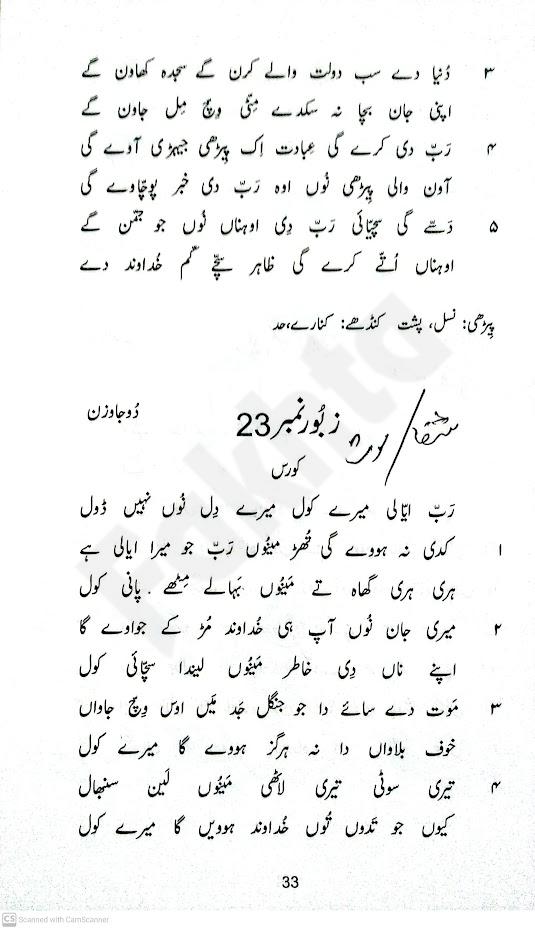 ۳ دُنیا دے سب دولت والے کرن گے سجدہ کھاون گے
اپنی جان بچا نہ سکدے مِٹّی وِچ مِل جاون گے
۴ رَبّ دی کرے گی عِبادت اِک پِیڑھی جیہڑی آوے گی
آون والی پِیڑھی نُوں اوہ رَبّ دی خبر پوہنچاوے گی
۵ دَسّے گی سچّیائی رَبّ دِی اوہناں نُوں جو جمّن گے
اوہناں اُتّے کرے گی ظاہر سچّے کّم خُداوند دے
پِیڑھی: نسل، پشت کنڈھے: کنارے،حد
زبُور نمبر 23
دُوجا وزن
کورس
رَبّ ایّالی میرے کول میرے دِل نُوں نہیں ڈول
۱ کدی نہ ہووے گی تُھڑ مَینُوں رَبّ جو میرا ایالی ہے
ہری ہری گھاہ تے مَینُوں بَہالے مِٹھے پانی کول
۲ میری جان نُوں آپ ہی خُداوند مُڑ کے جواوے گا
اپنے ناں دِی خاطر مَینُوں لیندا سچّائی کول
۳ مَوت دے سائے دا جو جنگل جَد مَیں اوس وِچ جاواں
خوف بلاواں دا نہ ہرگز ہووے گا میرے کول
۴ تیری سوٹی تیری لاٹھی مَینُوں لَین سنبھال
کیوں جو تَدوں تُوں خُداوند ہوویں گا میرے کول
33
Fakhta
CS Scanned with CamScanner